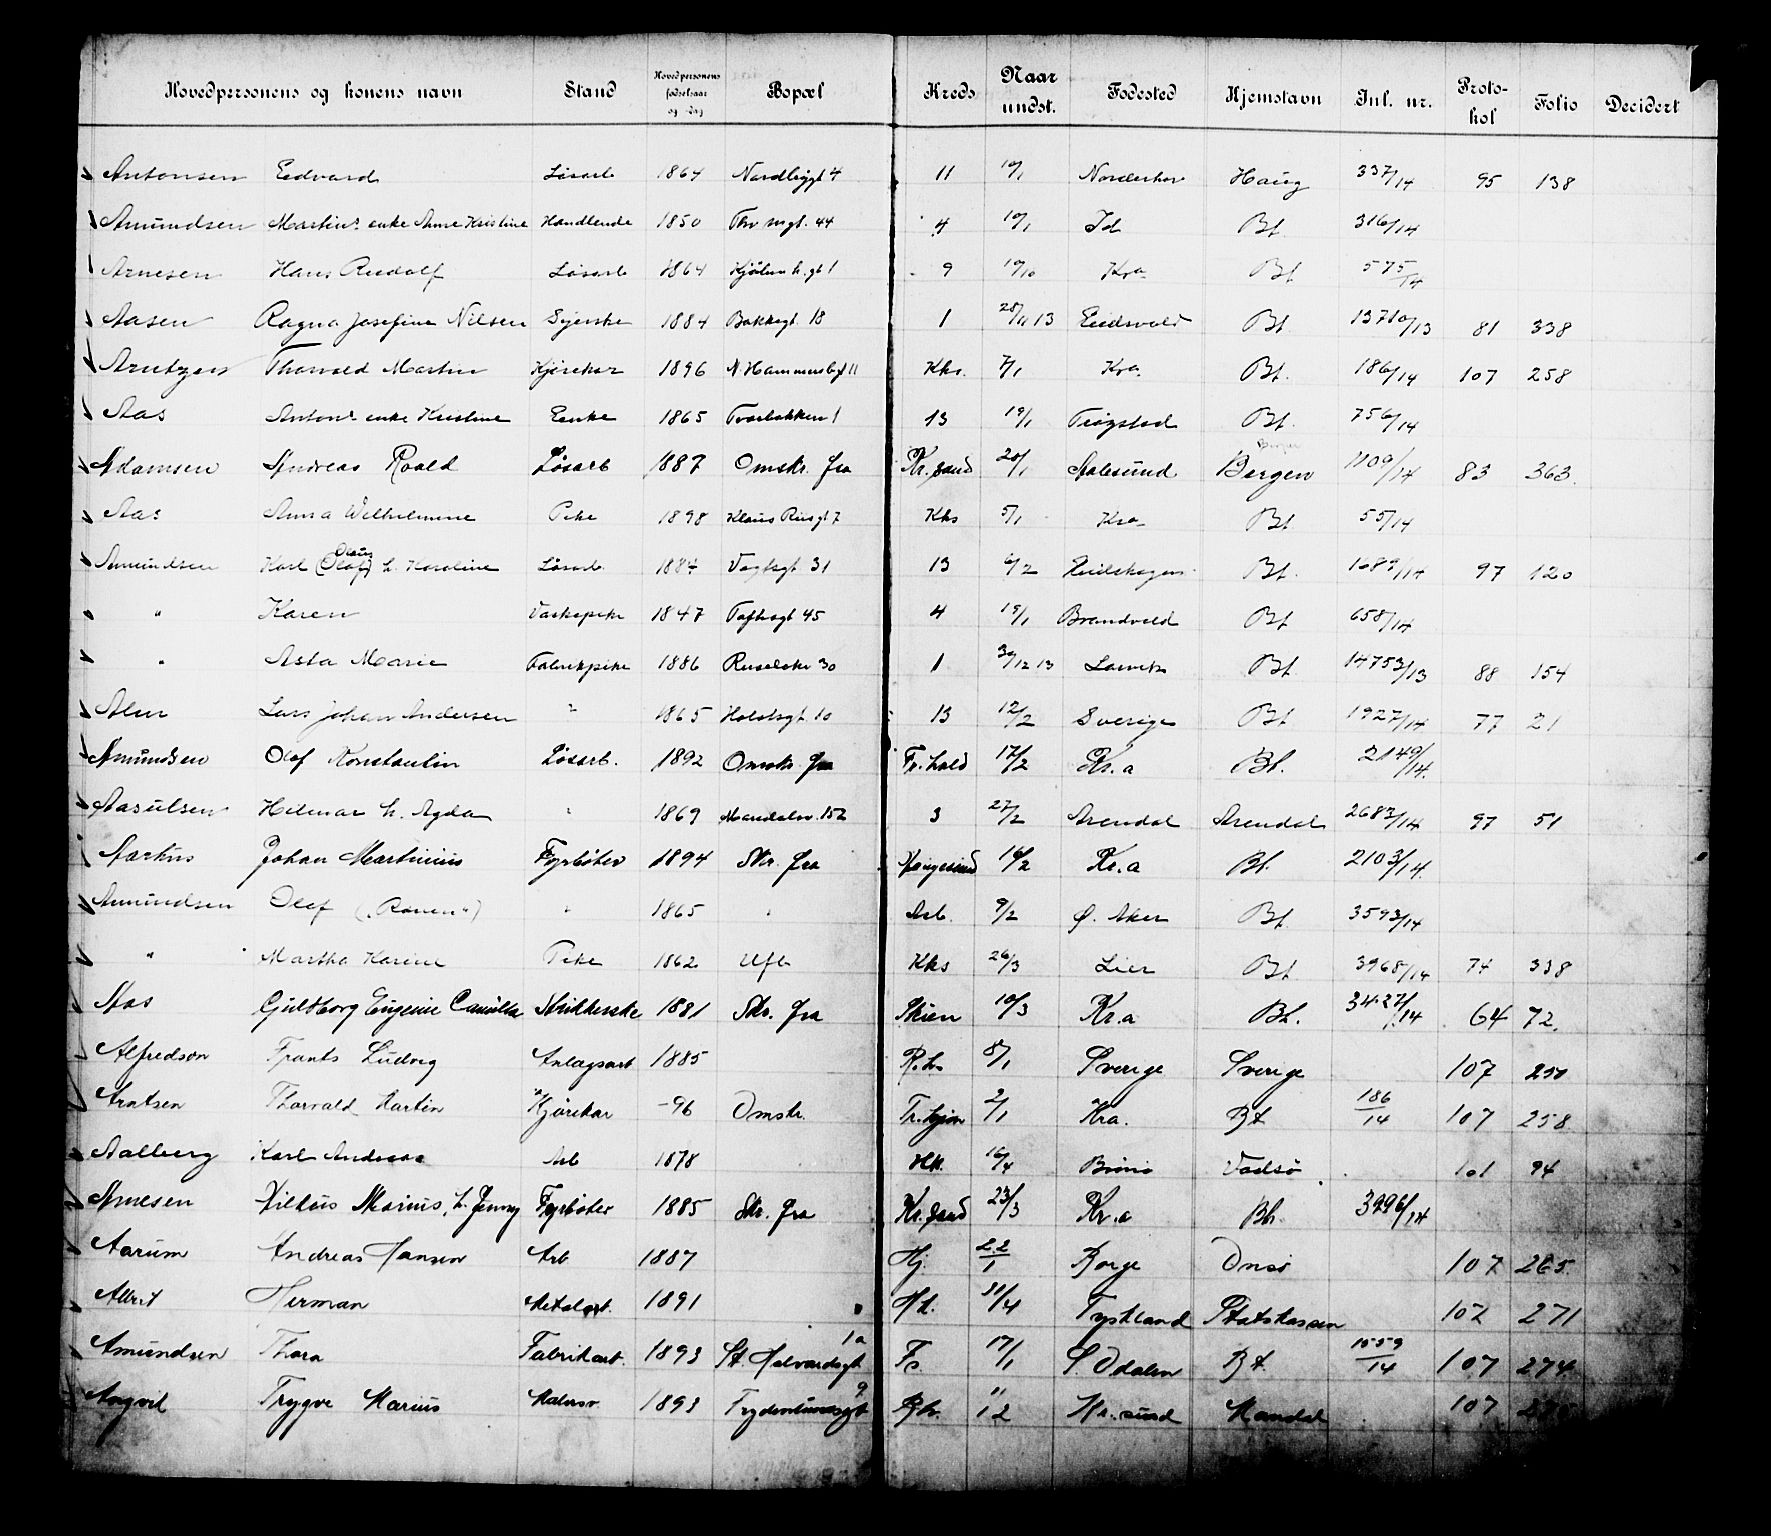 Hovedpersonens og konens navn Stand Hovedpersonens fødselsaar og -dag Bopæl Kreds Naar undst. Fødested Hjemstavn Inl. nr. Protokol Folio Decidert
Antonsen Edvard Løsarb 1864 Nordbygt 4 11 10/1 Norderhov Haug 337/14 95 138
Amundsen Martins enke Anne Kristine Handlende 1850 Thv mgt. 44 4 10/1 Id Bt. 316/14
Arnesen Hans Rudolf Løsarb 1864 9 10/10 Kra Bt 575/14
Aasen Ragna Josefine Nilsen Syerske 1884 Bakkegt. 18 1 28/11 13 Eidsvold Bt. 13710/13 81 338
Arntzen Thorvald Martin Kjørekar 1896 N Hammersbgt 11 Kks. 7/1 Kra. Bt. 186/14 107 258
Aas Antons enke Kristine Enke 1865 Torbakken 1 13 19/1 Trøgstad Bt. 756/14
Adamsen Andreas Roald Løsarb 1887 Omstr. fra Kr.sand 20/1 Aalesund Bergen 1109/14 83 363.
Aas Anna Wilhelmine Pike 1898 Klaus Riisgt 7 Kks 5/1 Kra Bt 55/14
Amundsen Karl (Olaf) Olaus h. Karoline Løsarb. 1884 Vogtsgt 31 13 6/2 Eidskogen Bt. 1689/14 97 120
" Karen Vaskepike 1847 Toftesgt 45 4 19/1 Brandvold Bt 658/14
" Asta Marie Fabrikpike 1886 Ruseløkv 30 1 30/12 13 Larvik Bt. 14753/13 88 154
Alm Lars Johan Andersen " 1865 Holstsgt. 10 13 12/2 Sverige Bt 1927/14 77 21
Amundsen Olaf Konstantin Løsarb. 1892 Omstr. fra Fr.hald 17/2 Kr.a Bt. 2149/14.
Aasulsen Hilmar h. Agda " 1869 Maridalsv. 152 3 27/2 Arendal Arendal 2683/14 97 51
Johan Martinius Fyrbøter 1894 Str. fra Haugesund 16/2 Kr.a Bt. 2103/14.
Amundsen Olaf " 1865 " Arb. 9/2 Ø. Aker Bt. 3593/14
" Martha Karine Pike 1862 Ufb Kks 26/3 Lier Bt 3968/14 74 338
Aas Guldborg Eugenie Camilla Strikkerske 1881 Str. fra Skien 10/3 Kr.a Bt. 3427/14 64 72.
Alfredson Frants Ludvig Anlægsarb 1885 R.h. 8/1 Sverige Sverige 107 250
Arntsen Thorvald Martin Kjørekar -96 Omstr. Tr.hjem 2/1 Kra. Bt 186/14 107 258
Aalberg Karl Andreas Arb 1878 Hk. 16/4 Vadsø 101 94
Arnesen Marius, h. Jenny Fyrbøter 1885 Str. fra Kr.sand 23/3 Kr.a Bt. 3996/14
Aarum Andreas Hansen Arb 1887 Hj. 22/1 Borge Onsø 107 265.
Albert Herman Metalarb. 1891 Hk. Tyskland Statskassen 107 271
Amundsen Thora Fabrikarb. 1893 St. Halvardsgt 1a Fs. 17/1 S. Odalen Bt. 1559/14 107 274
Trygve Marius Malersv. 1893 Frydenlundsgt 9 12 Kr.sund Mandal 107